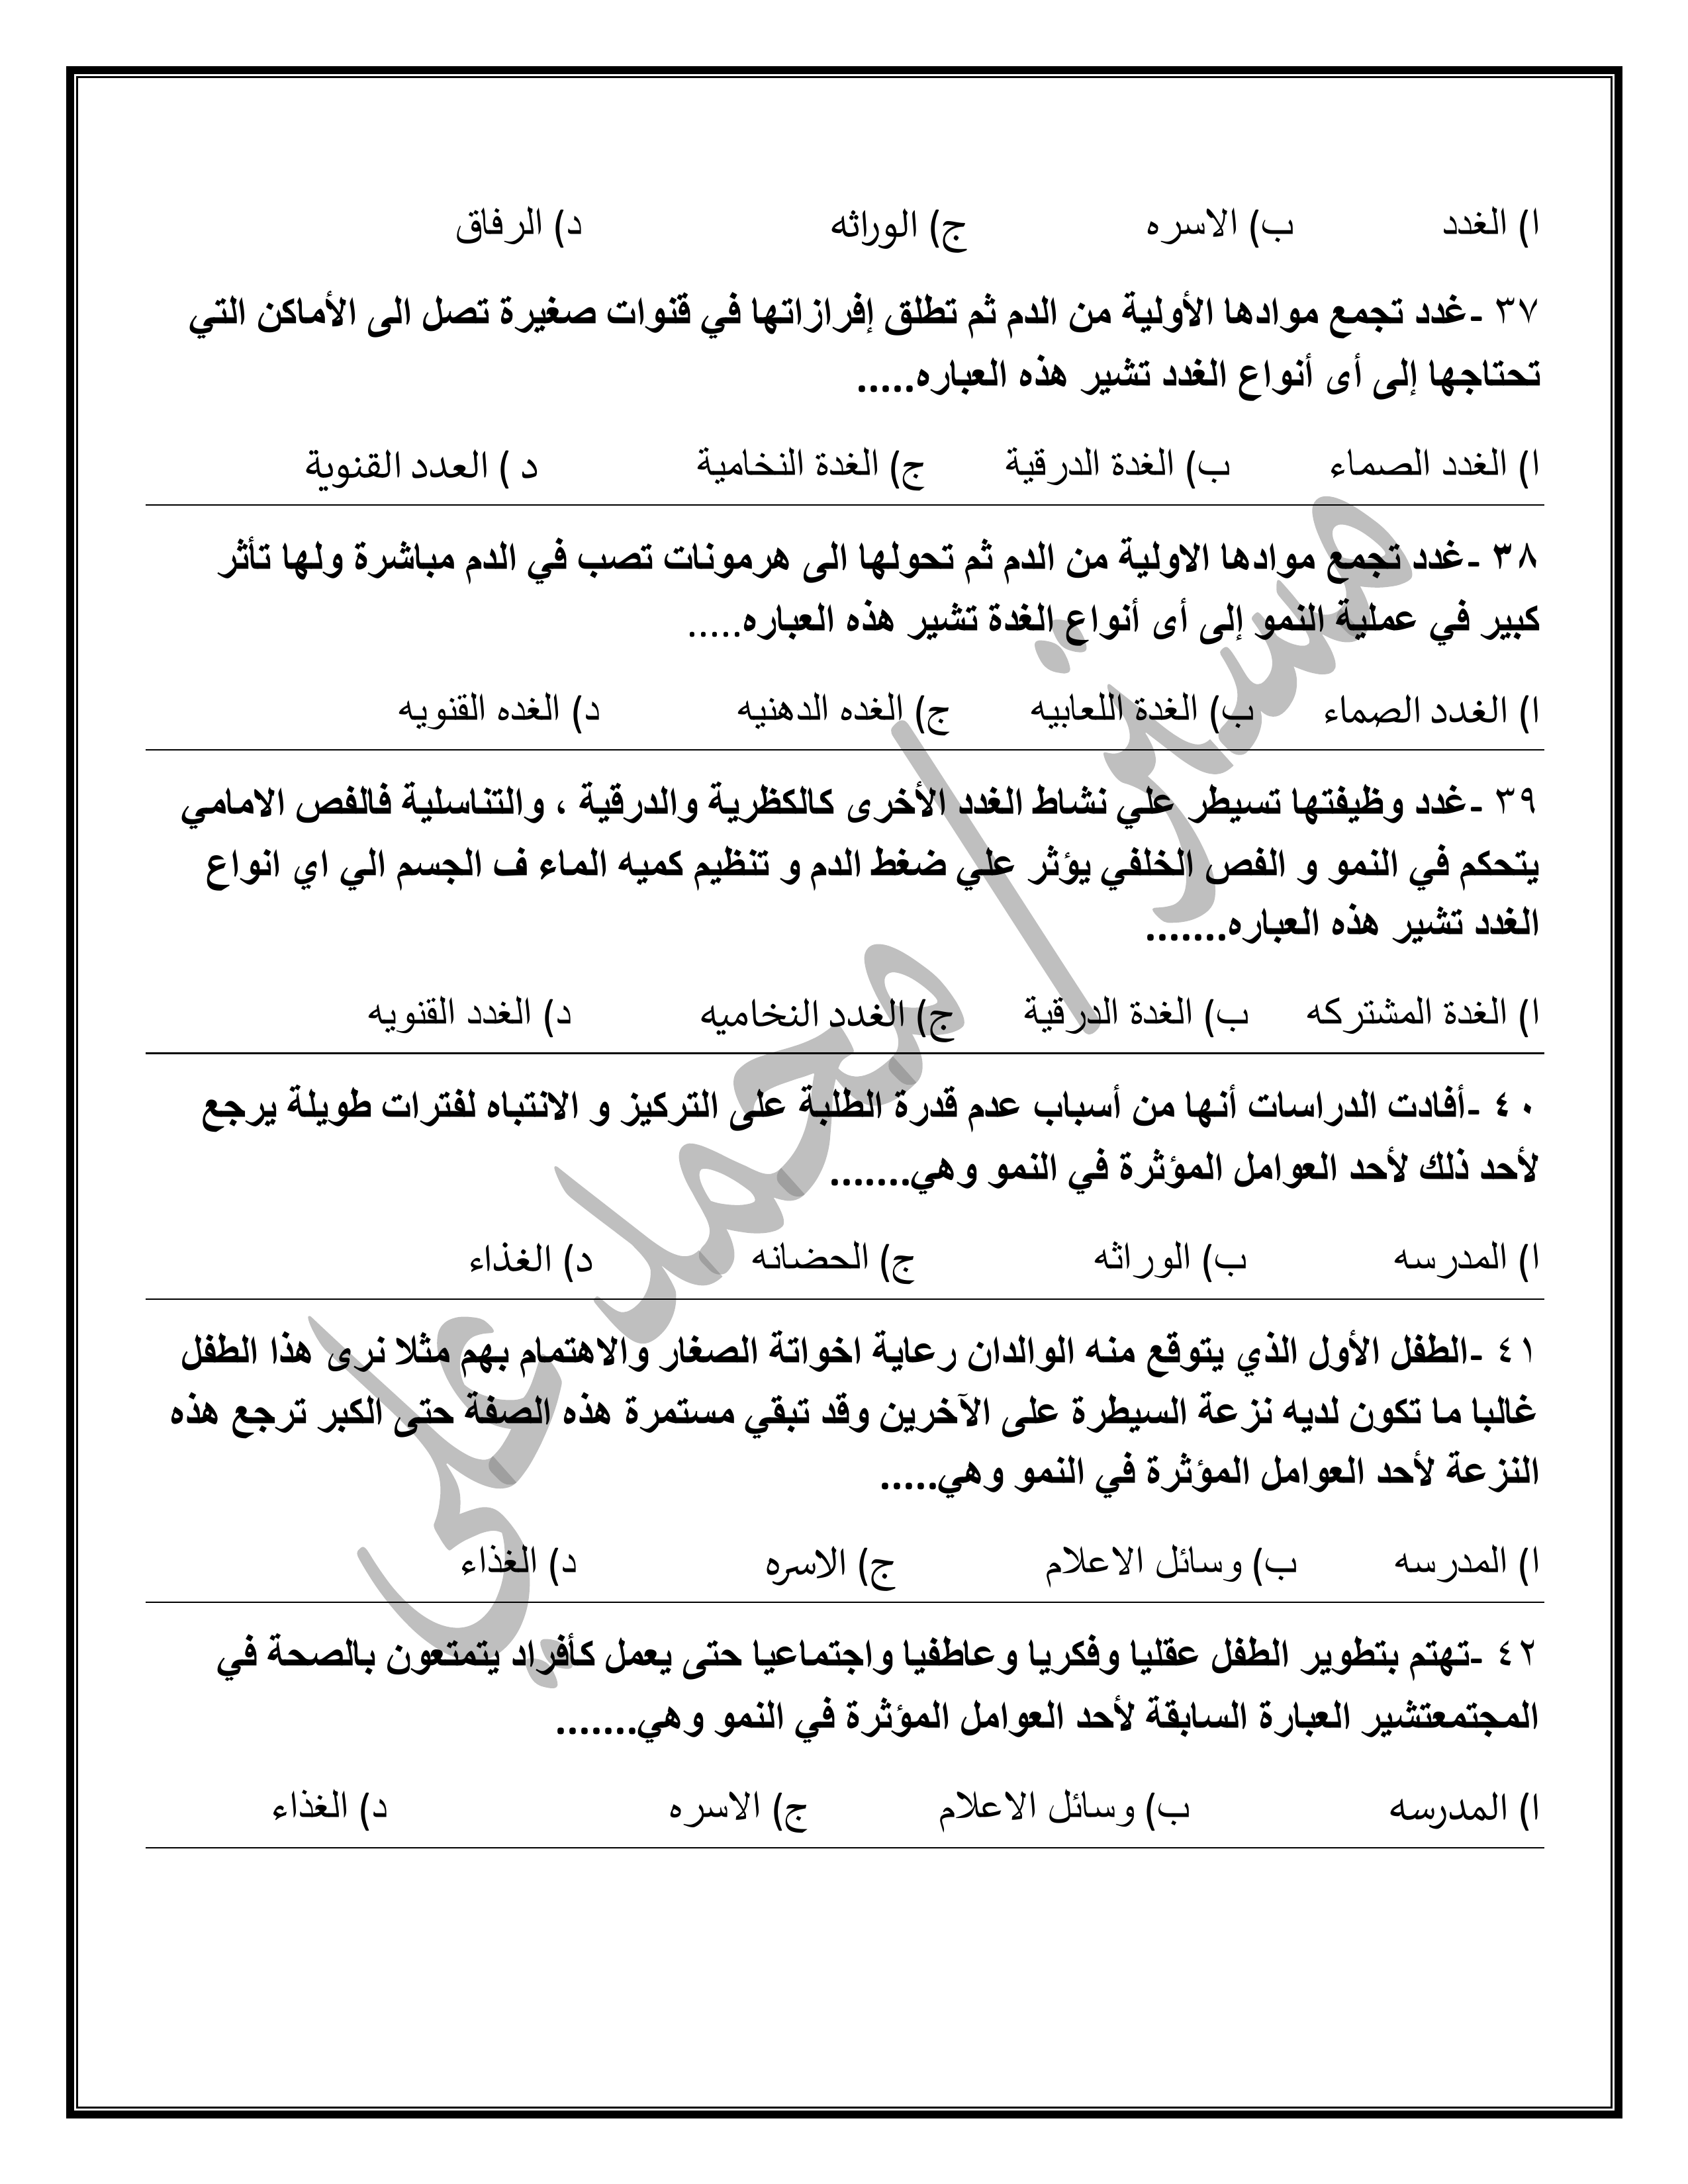 ا) الغدد ب) الاسره ج) الوراثه د) الرفاق
٣٧ -غدد تجمع موادها الأولية من الدم ثم تطلق إفرازاتها في قنوات صغيرة تصل الى الأماكن التي
تحتاجها إلى أى أنواع الغدد تشير هذه العباره.....
ا) الغدد الصماء ب) الغدة الدرقية ج) الغدة النخامية د ) العدد القنوية
٣٨ -غدد تجمع موادها الاولية من الدم ثم تحولها الى هرمونات تصب في الدم مباشرة ولها تأثر
كبير في عملية النمو إلى أى أنواع الغدة تشير هذه العباره.....
ا) الغدد الصماء ب) الغدة اللعابيه ج) الغده الدهنيه د) الغده القنويه
٣٩ -غدد وظيفتها تسيطر علي نشاط الغدد الأخرى كالكظرية والدرقية ، والتناسلية فالفص الامامي
يتحكم في النمو و الفص الخلفي يؤثر علي ضغط الدم و تنظيم كميه الماء ف الجسم الي اي انواع
الغدد تشير هذه العباره.......
ا) الغدة المشتركه ب) الغدة الدرقية ج) الغدد النخاميه د) الغدد القنويه
٤٠ -أفادت الدراسات أنها من أسباب عدم قدرة الطلبة على التركيز و الانتباه لفترات طويلة يرجع
لأحد ذلك لأحد العوامل المؤثرة في النمو وهي.......
ا) المدرسه ب) الوراثه ج) الحضانه د) الغذاء
٤١ -الطفل الأول الذي يتوقع منه الوالدان رعاية اخواتة الصغار والاهتمام بهم مثلا نرى هذا الطفل
غالبا ما تكون لديه نزعة السيطرة على الآخرين وقد تبقي مستمرة هذه الصفة حتى الكبر ترجع هذه
النزعة لأحد العوامل المؤثرة في النمو وهي.....
ا) المدرسه ب) وسائل الاعلام ج) الاسره د) الغذاء
٤٢ -تهتم بتطوير الطفل عقليا وفكريا وعاطفيا واجتماعيا حتى يعمل كأفراد يتمتعون بالصحة في
المجتمعتشير العبارة السابقة لأحد العوامل المؤثرة في النمو وهي.......
ا) المدرسه ب) وسائل الاعلام ج) الاسره د) الغذاء
مستر/محمد علي